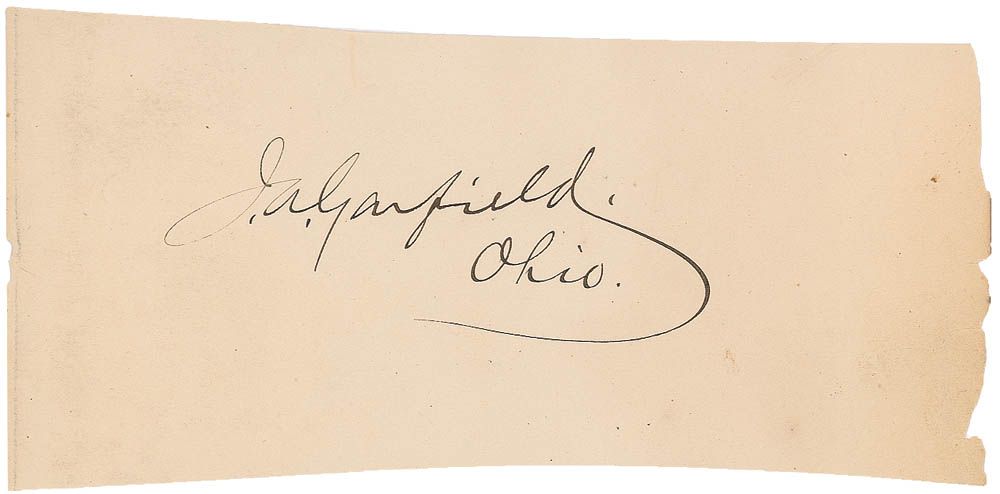 J.A. Garfield.
Ohio.